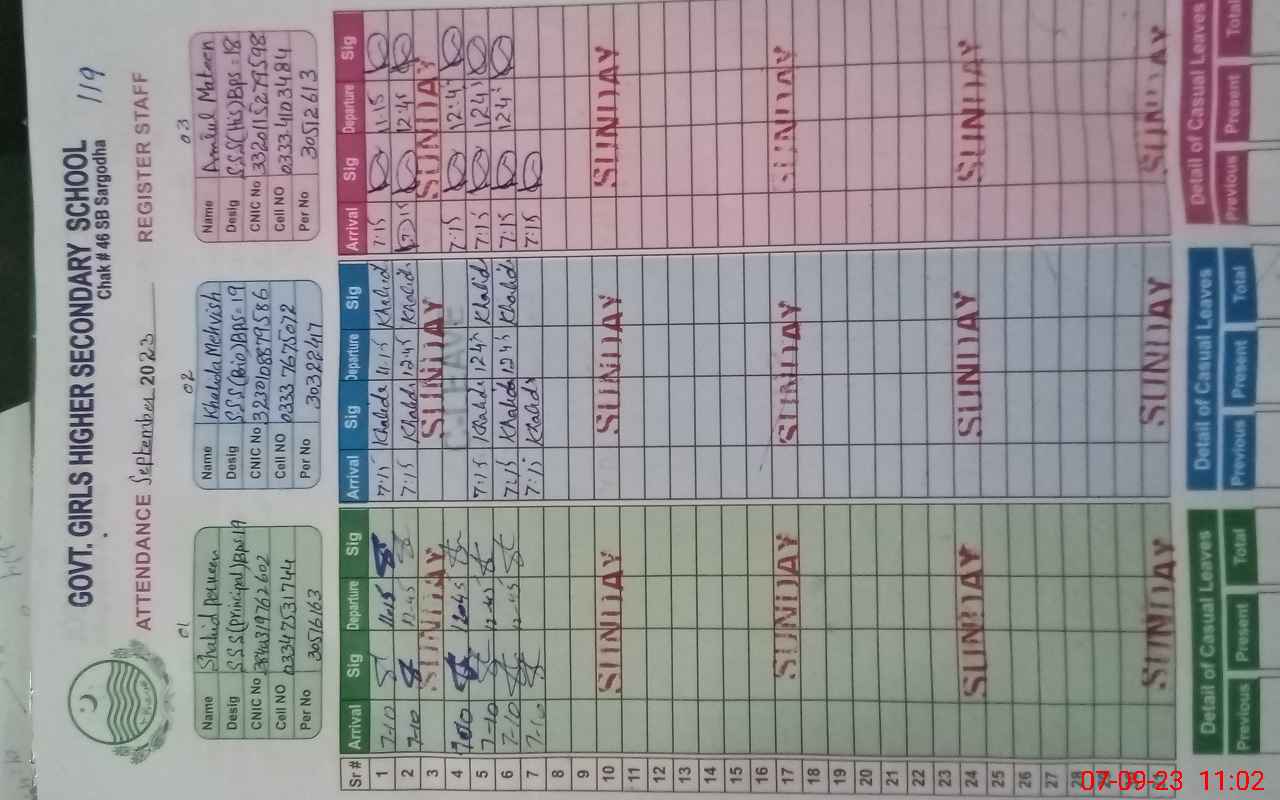 GOVT. GIRLS HIGHER SECONDARY SCHOOL 119
Chak # 46 SB Sargodha
ATTENDANCE September 2023 REGISTER STAFF
01
Name Shahid Perveen
Desig SSS(Principal)BPS-19
CNIC No
Cell NO 03347531744
Per No 30516163
02
Name Khalida Mehvish
Desig SSS(Bio)BPS-19
CNIC No 3230108879586
Cell NO 0333 7675072
Per No 30322417
03
Name
Desig SSS(HS)BPS-18
CNIC No 3320115279598
Cell NO 03334103484
Per No 30512613
Sr# Arrival Sig Departure Sig Arrival Sig Departure Sig Arrival Sig Departure Sig
1 7-10 11:15 7:15 Khalida 11:15 Khalid 7:15 11:15
2 7-10 12-45 7:15 Khalid 12:45 Khalid 7:15 12:45
3 SUNDAY SUNDAY SUNDAY
4 7-10 12:45 C.LEAVE 7:15 12:4
5 7-10 12-45 7:15 Khalid 12:45 Khalid 7:15 124
6 7-10 12-45 7:15 Khalida 12:45 Khalid 7:15 124
7 7-10 7:15 Khalid 7:15
8
9
10 SUNDAY SUNDAY SUNDAY
11
12
13
14
15
16
17 SUNDAY SUNDAY SUNDAY
18
19
20
21
22
23
24 SUNDAY SUNDAY SUNDAY
25
26
27
28
SUNDAY SUNDAY SUNDAY
Detail of Casual Leaves Detail of Casual Leaves Detail of Casual Leaves
Previous Present Total Previous Present Total Previous Present Total
07-09-23 11:02